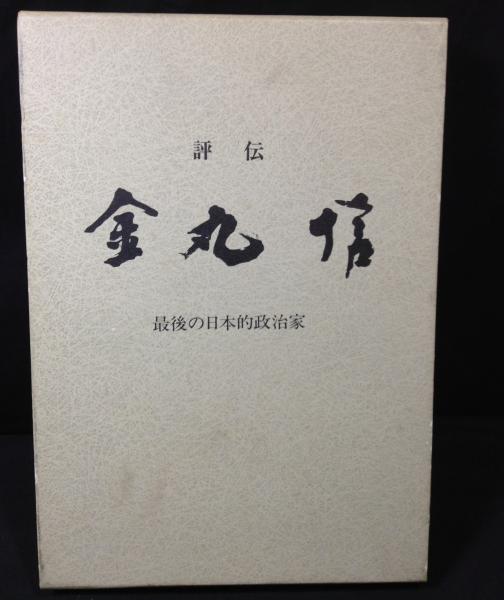 評伝
金丸信
最後の日本的政治家